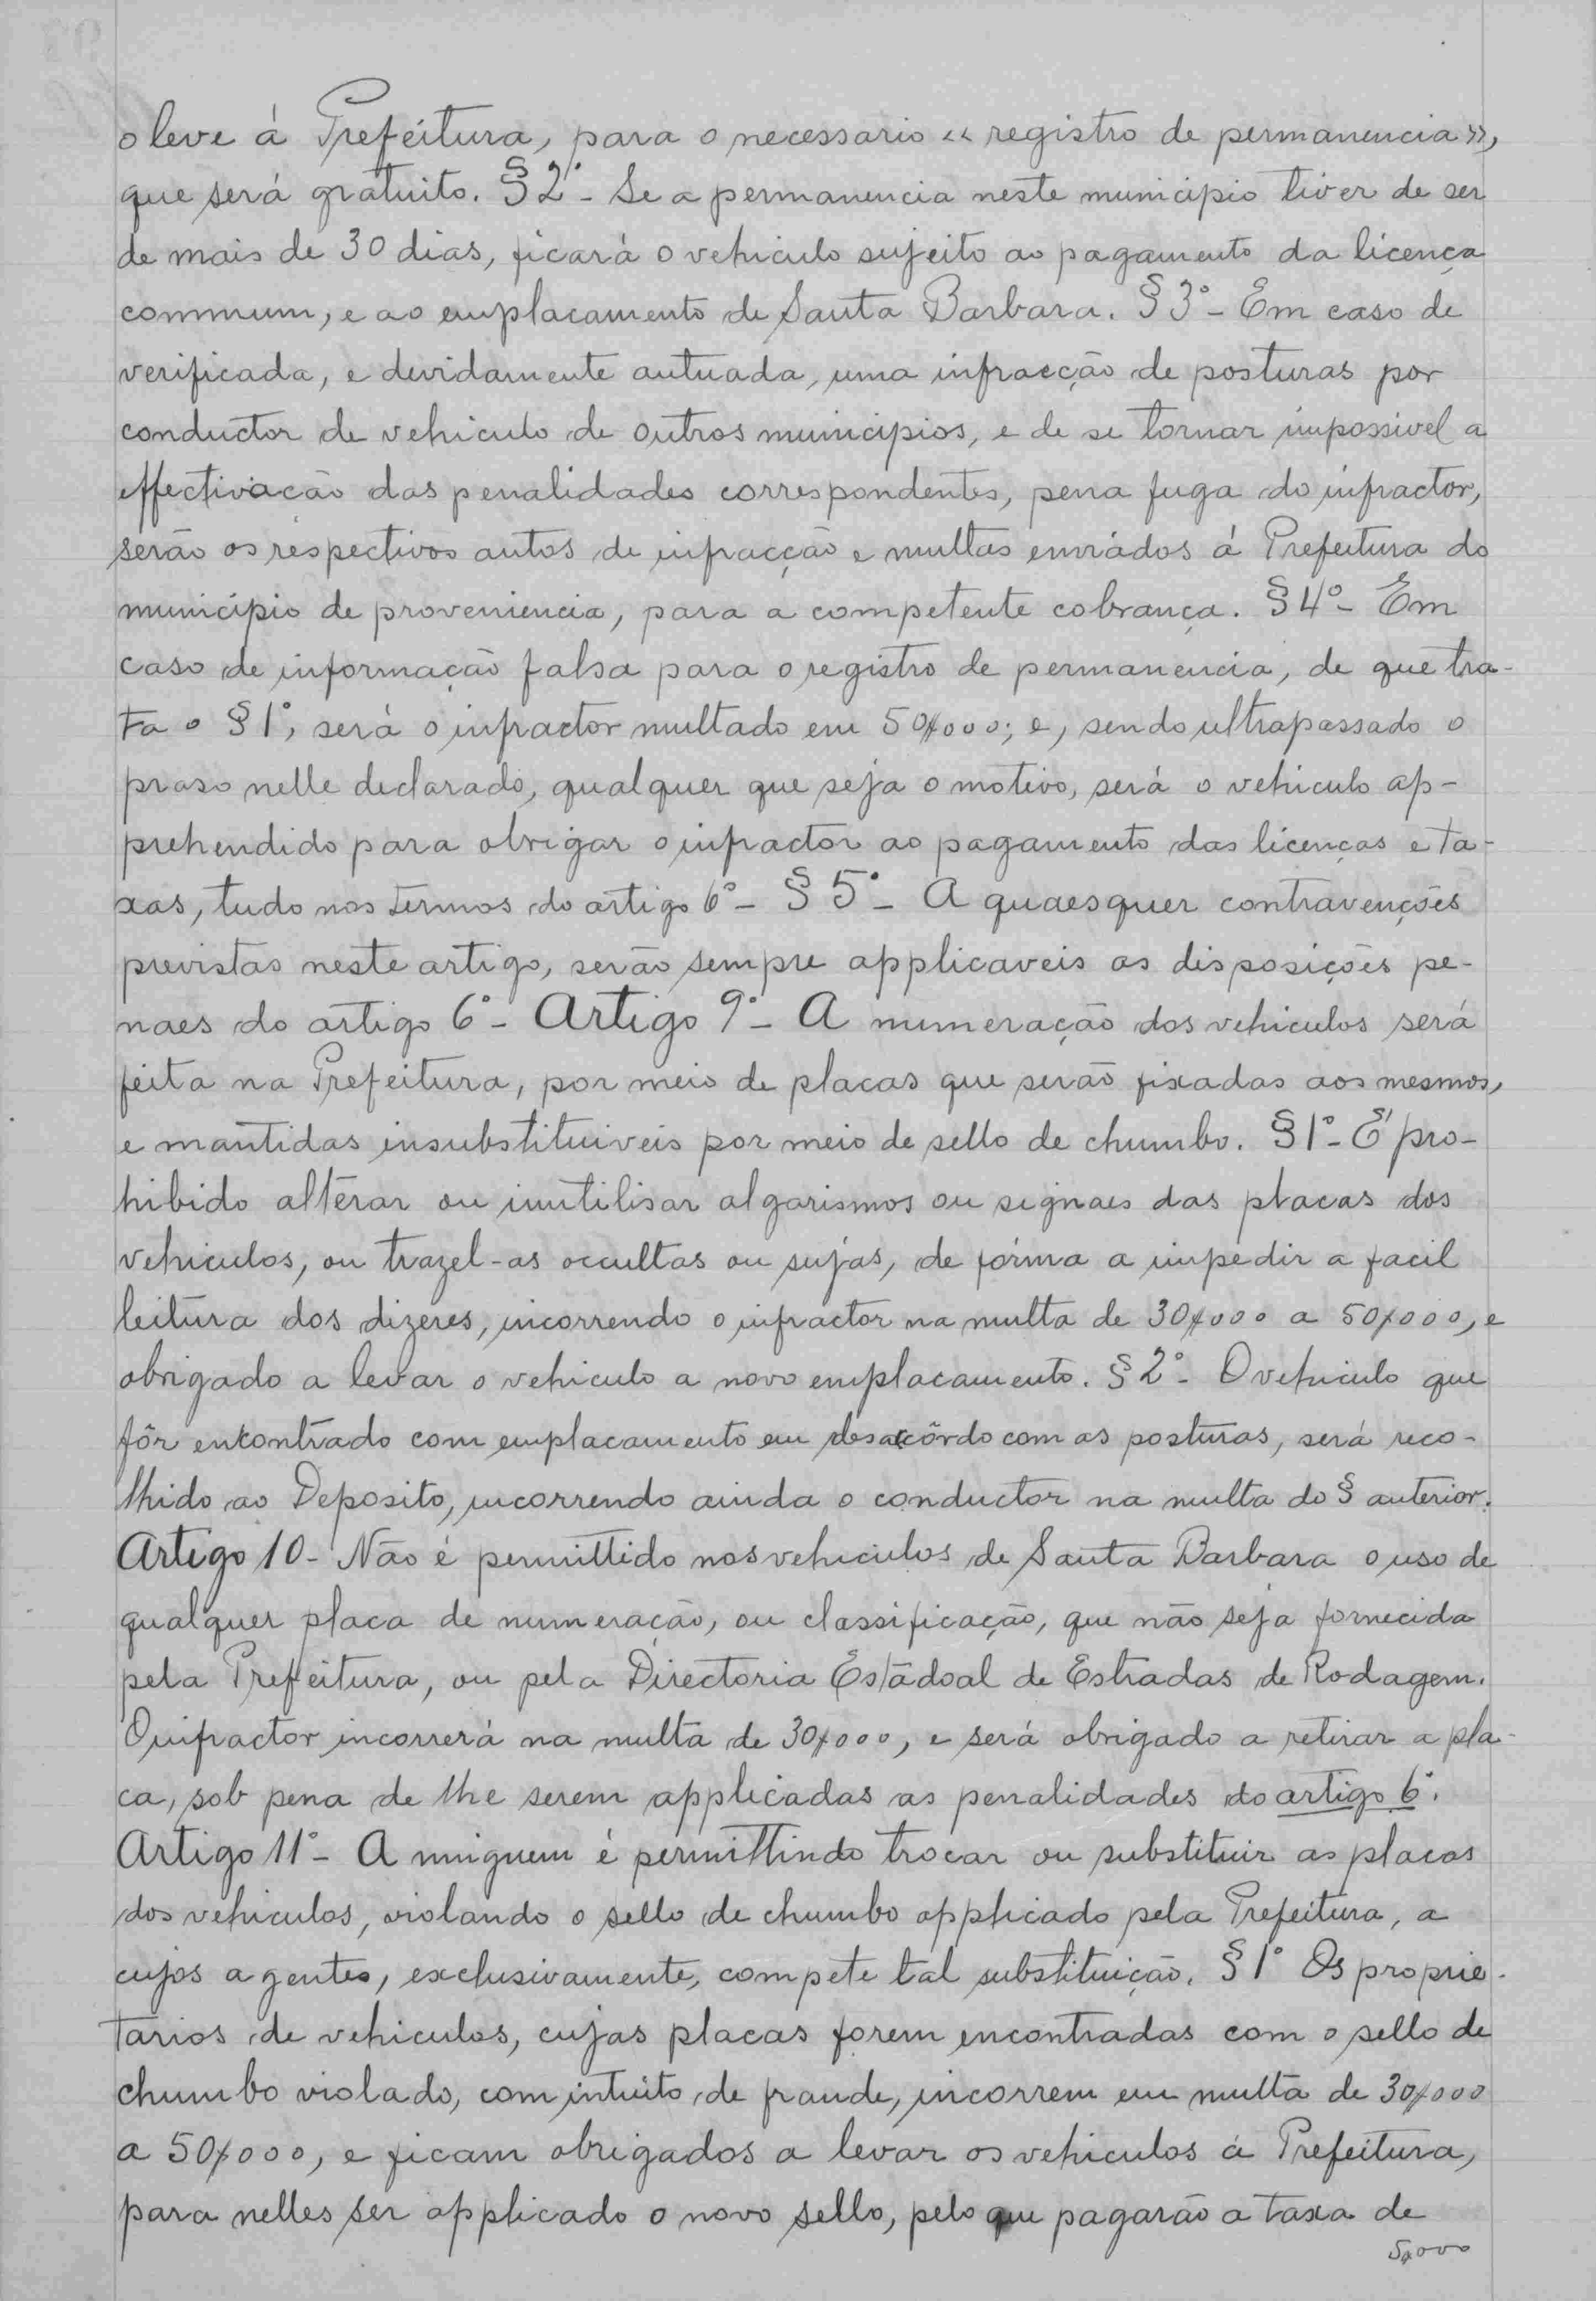 o leve á Prefeitura, para o necessario «registro de permanencia»,
que será gratuito. § 2º - Se a permanencia neste municipio tiver de ser
de mais de 30 dias, ficará o vehiculo sujeito ao pagamento da licença
commum, e ao emplacamento de Santa Barbara. § 3º - Em caso de
verificada, e devidamente autuada, uma infracção de posturas por
conductor de vehiculo de outros municipios, e de se tornar impossivel a
effectivacão das penalidades correspondentes, pena fuga do infractor,
serão os respectivos autos de infracção e multas enviádos á Prefeitura do
municipio de proveniencia, para a competente cobrança. § 4º - Em
caso de informação falsa para o registro de permanencia, de que tra-
ta o § 1º, será o infractor multado em 50$000; e, sendo ultrapassado o
praso nelle declarado, qualquer que seja o motivo, será o vehiculo ap-
prehendido para obrigar o infractor ao pagamento das licenças e ta-
xas, tudo nos termos do artigo 6º - § 5º - A quaesquer contravenções
previstas neste artigo, serão sempre applicaveis as disposições pe-
naes do artigo 6º - Artigo 9º - A numeração dos vehiculos será
feita na Prefeitura, por meio de placas que serão fixadas aos mesmos,
e mantidas insubstituiveis por meio de sello de chumbo. § 1º - É pro-
hibido alterar ou inutilisar algarismos ou signaes das placas dos
vehiculos, ou trazel-as occultas ou sujas, de fórma a impedir a facil
leitura dos dizeres, incorrendo o infractor na multa de 30$000 a 50$000, e
obrigado a levar o vehiculo a novo emplacamento. § 2º - O vehiculo que
fôr encontrado com emplacamento em desaccôrdo com as posturas, será reco-
lhido ao Deposito, incorrendo ainda o conductor na multa do § anterior.
Artigo 10 - Não é permittido nos vehiculos de Santa Barbara o uso de
qualquer placa de numeração, ou classificação, que não seja fornecida
pela Prefeitura, ou pela Directoria Estadoal de Estradas de Rodagem.
O infractor incorrerá na multa de 30$000, e será obrigado a retirar a pla-
ca, sob pena de lhe serem applicadas as penalidades do artigo 6º.
Artigo 11º - A ninguem é permittindo trocar ou substituir as placas
dos vehiculos, violando o sello de chumbo applicado pela Prefeitura, a
cujos agentes, exclusivamente, compete tal substituição. § 1º Os proprie-
tarios de vehiculos, cujas placas forem encontradas com o sello de
chumbo violado, com intuito de fraude, incorrem em multa de 30$000
a 50$000, e ficam obrigados a levar os vehiculos á Prefeitura,
para nelles ser applicado o novo sello, pelo que pagarão a taxa de
5$000